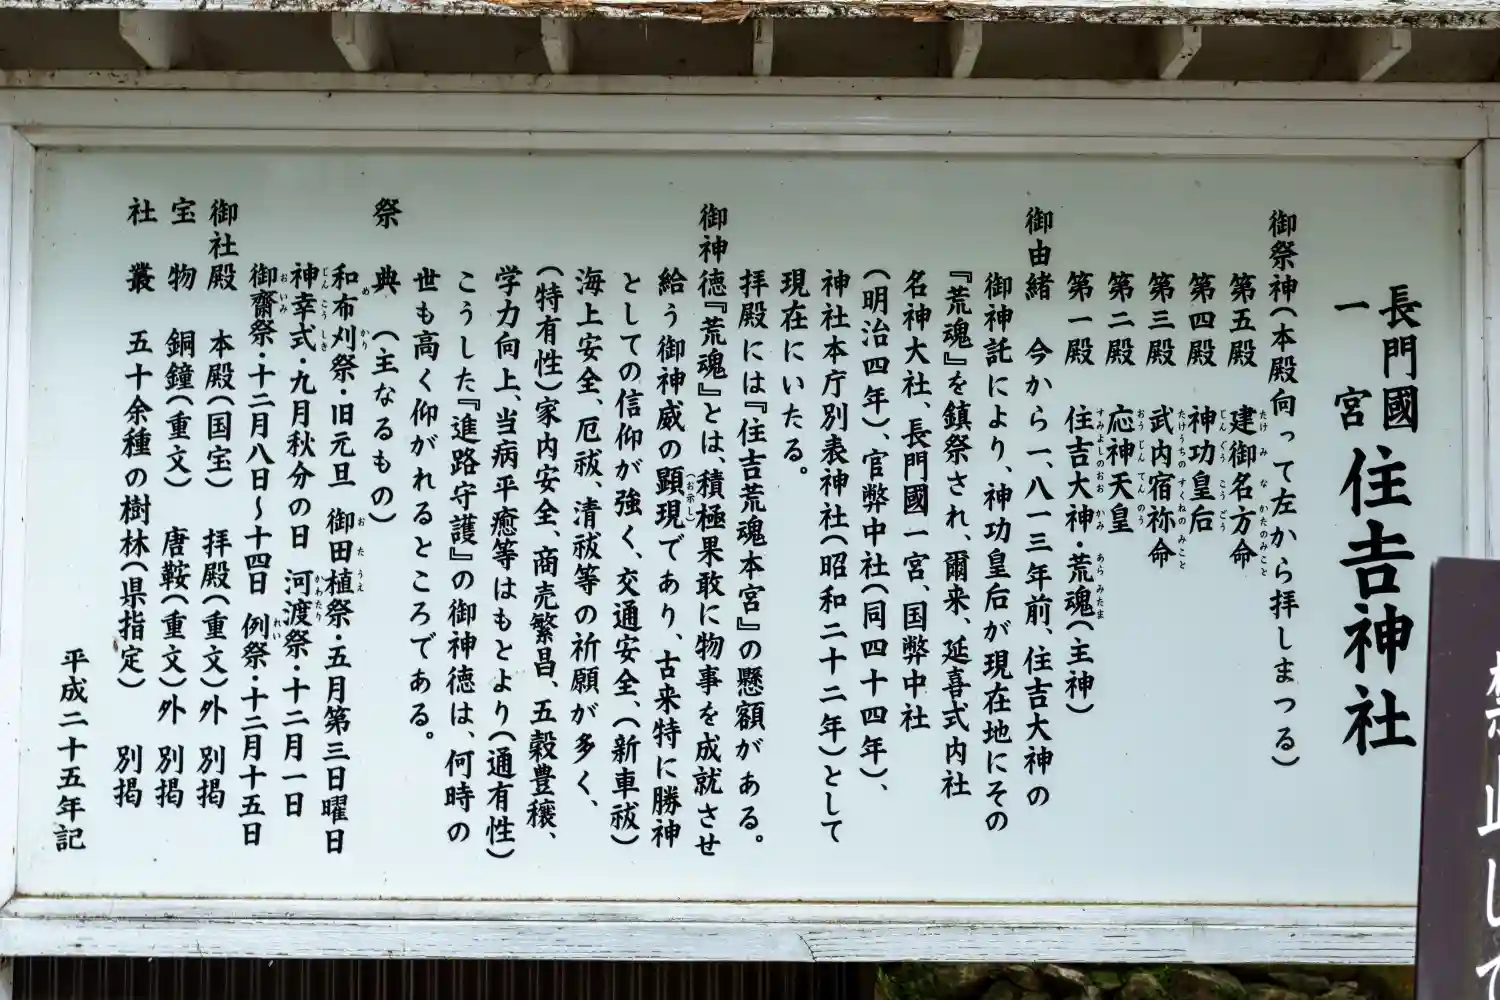 長門國
一宮
住吉神社
御祭神(本殿向って左から拝しまつる)
第五殿 建御名方命
たけ み な かたのみこと
第四殿 神功皇后
じんぐう こうごう
第三殿 武内宿祢命
たけうちの すくねの みこと
第二殿 応神天皇
おうじん てんのう
第一殿 住吉大神・荒魂(主神)
すみよしのおおかみ あらみたま
御由緒 今から一、八一三年前、住吉大神の
御神託により、神功皇后が現在地にその
『荒魂』を鎮祭され、爾来、延喜式内社
名神大社、長門國一宮、国弊中社
(明治四年)、官弊中社(同四十四年)、
神社本庁別表神社(昭和二十二年)として
現在にいたる。
拝殿には『住吉荒魂本宮』の懸額がある。
御神徳『荒魂』とは、積極果敢に物事を成就させ
給う御神威の顕現であり、古来特に勝神
(お示し)
としての信仰が強く、交通安全、(新車祓)
海上安全、厄祓、清祓等の祈願が多く、
(特有性)家内安全、商売繁昌、五穀豊穣、
学力向上、当病平癒等はもとより(通有性)
こうした『進路守護』の御神徳は、何時の
世も高く仰がれるところである。
祭典 (主なるもの)
和布刈祭・旧元旦 御田植祭・五月第三日曜日
め かり お た うえ
神幸式・九月秋分の日 河渡祭・十二月一日
じんこうしき かわたり
御齋祭・十二月八日～十四日 例祭・十二月十五日
おいみ れい
御社殿 本殿(国宝) 拝殿(重文)外 別掲
宝物 銅鐘(重文) 唐鞍(重文)外 別掲
社叢 五十余種の樹林(県指定) 別掲
平成二十五年記
止して